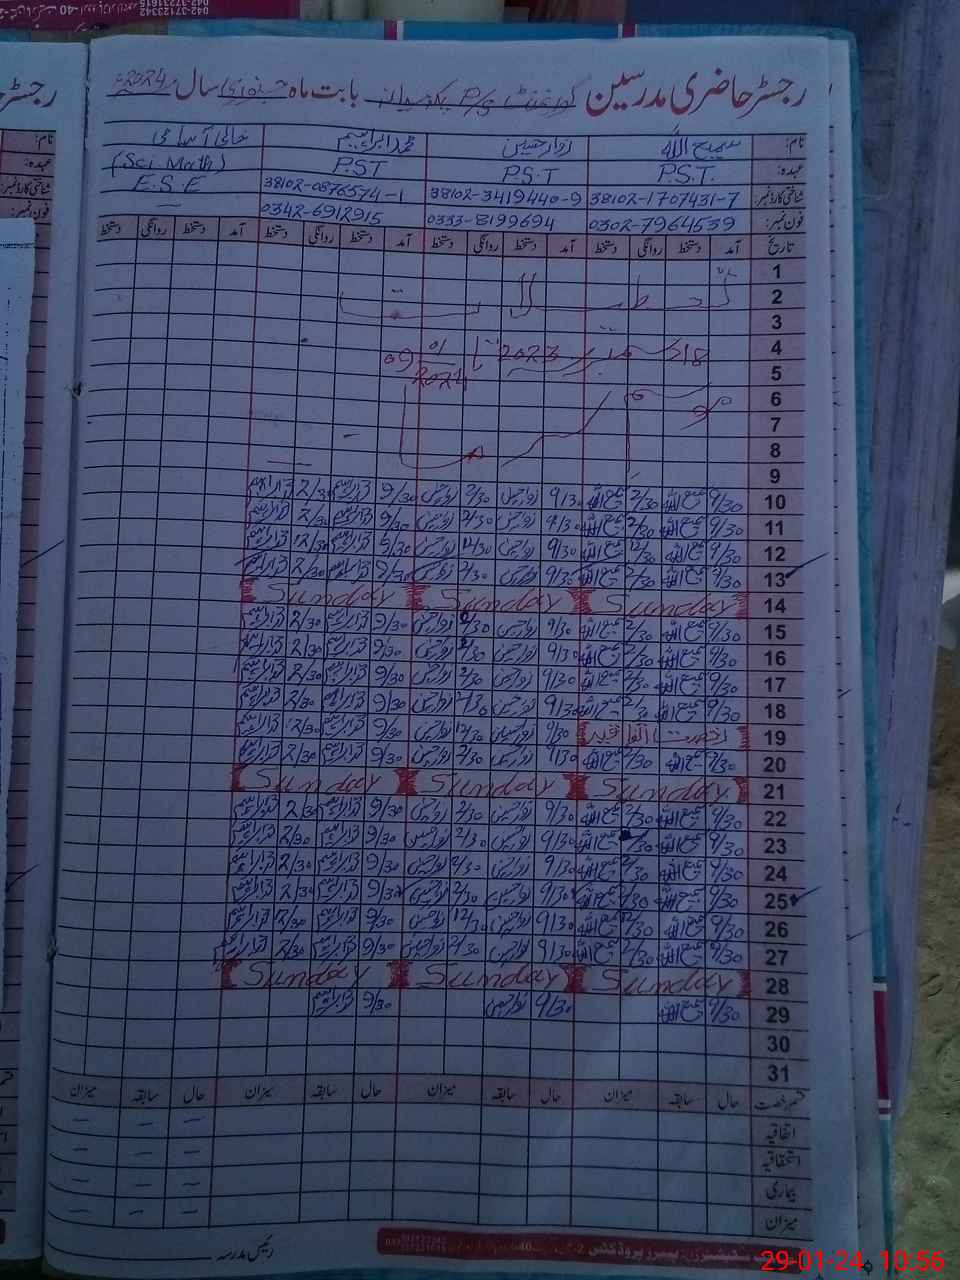 رجسٹر حاضری مدرسین گورنمنٹ P/S بابت ماہ جنوری سال 2024ء
نام: سمیع اللہ زوار حسین محمد ابراہیم خالی آسامی
عہدہ: P.S.T. P.S.T P.S.T (Sci. Math) E.S.E
شناختی کارڈ نمبر: 38102-1707431-7 38102-3419440-9 38102-0876574-1
فون نمبر: 0302-7964539 0333-8199694 0342-6912915
تاریخ آمد دستخط روانگی دستخط آمد دستخط روانگی دستخط آمد دستخط روانگی دستخط آمد دستخط روانگی دستخط
1
2 تعطیلات
3
4 18 دسمبر 2023 تا 09 01
5 2024
6 موسم سرما
7
8
9
10 9/30 سمیع اللہ 2/30 سمیع اللہ 9/30 زوار حسین 2/30 زوار حسین 9/30 محمد ابراہیم 2/30 محمد ابراہیم
11 9/30 سمیع اللہ 2/30 سمیع اللہ 9/30 زوار حسین 2/30 زوار حسین 9/30 محمد ابراہیم 2/30 محمد ابراہیم
12 9/30 سمیع اللہ 12/30 سمیع اللہ 9/30 زوار حسین 12/30 زوار حسین 9/30 محمد ابراہیم 12/30 محمد ابراہیم
13 9/30 سمیع اللہ 2/30 سمیع اللہ 9/30 زوار حسین 2/30 زوار حسین 9/30 محمد ابراہیم 2/30 محمد ابراہیم
14 Sunday Sunday Sunday
15 9/30 سمیع اللہ 2/30 سمیع اللہ 9/30 زوار حسین 2/30 زوار حسین 9/30 محمد ابراہیم 2/30 محمد ابراہیم
16 9/30 سمیع اللہ 2/30 سمیع اللہ 9/30 زوار حسین 2/30 زوار حسین 9/30 محمد ابراہیم 2/30 محمد ابراہیم
17 9/30 سمیع اللہ 2/30 سمیع اللہ 9/30 زوار حسین 2/30 زوار حسین 9/30 محمد ابراہیم 2/30 محمد ابراہیم
18 9/30 سمیع اللہ 2/30 سمیع اللہ 9/30 زوار حسین 2/30 زوار حسین 9/30 محمد ابراہیم 2/30 محمد ابراہیم
19 رخصت اتفاقیہ 9/30 زوار حسین 12/30 زوار حسین 9/30 محمد ابراہیم 12/30 محمد ابراہیم
20 9/30 سمیع اللہ 2/30 سمیع اللہ 9/30 زوار حسین 2/30 زوار حسین 9/30 محمد ابراہیم 2/30 محمد ابراہیم
21 Sunday Sunday Sunday
22 9/30 سمیع اللہ 2/30 سمیع اللہ 9/30 زوار حسین 2/30 زوار حسین 9/30 محمد ابراہیم 2/30 محمد ابراہیم
23 9/30 سمیع اللہ سمیع اللہ 9/30 زوار حسین 2/30 زوار حسین 9/30 محمد ابراہیم 2/30 محمد ابراہیم
24 9/30 سمیع اللہ 2/30 سمیع اللہ 9/30 زوار حسین 2/30 زوار حسین 9/30 محمد ابراہیم 2/30 محمد ابراہیم
25 9/30 سمیع اللہ 2/30 سمیع اللہ 9/30 زوار حسین 2/30 زوار حسین 9/30 محمد ابراہیم 2/30 محمد ابراہیم
26 9/30 سمیع اللہ 12/30 سمیع اللہ 9/30 زوار حسین 12/30 زوار حسین 9/30 محمد ابراہیم 12/30 محمد ابراہیم
27 9/30 سمیع اللہ 2/30 سمیع اللہ 9/30 زوار حسین 2/30 زوار حسین 9/30 محمد ابراہیم 2/30 محمد ابراہیم
28 Sunday Sunday Sunday
29 9/30 سمیع اللہ 9/30 زوار حسین 9/30 محمد ابراہیم
30
31
قسم رخصت حال سابقہ میزان حال سابقہ میزان حال سابقہ میزان حال سابقہ میزان
اتفاقیہ
استحقاقیہ
بیماری
میزان
رئیس مدرسہ
29-01-24, 10:56